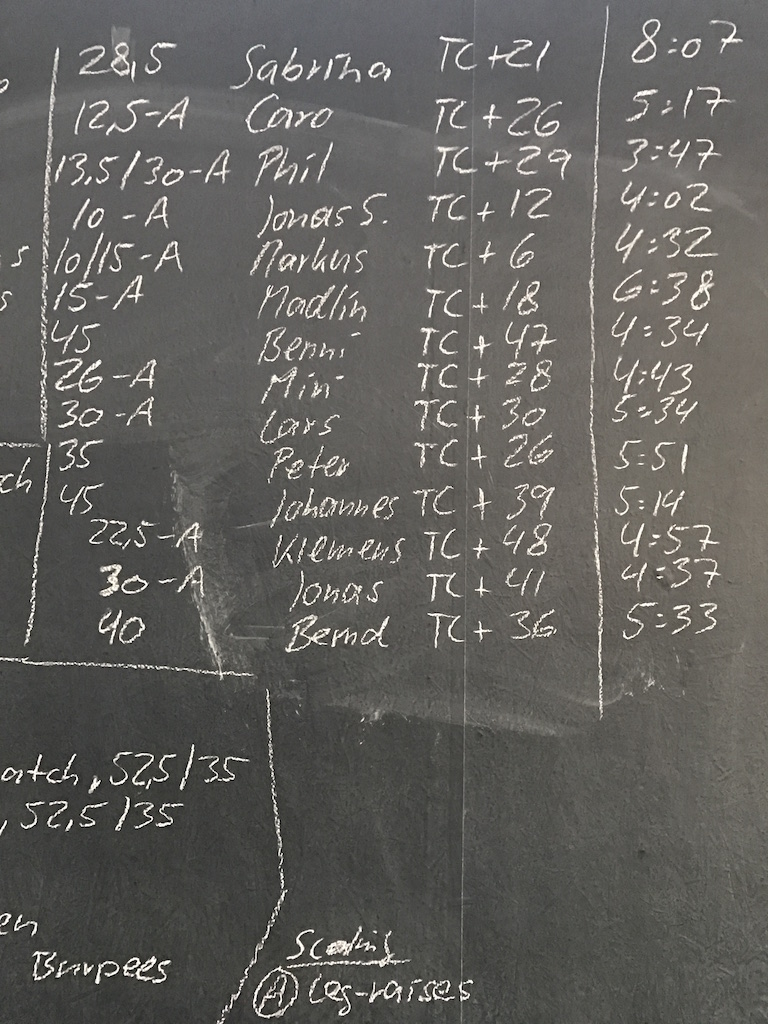 28,5 Sabrina TC +21 8:07
12,5-A Caro TC + 26 5:17
13,5/30-A Phil TC + 29 3:47
10 -A Jonas S. TC + 12 4:02
s 10/15-A Markus TC + 6 4:32
s 15-A Madlin TC + 18 6:38
45 Benni TC + 47 4:34
26-A Mini TC + 28 4:43
30-A Lars TC + 30 5:34
35 Peter TC + 26 5:51
ch 45 Johannes TC + 39 5:14
22,5-A Klemens TC + 48 4:57
30-A Jonas TC + 41 4:37
40 Bernd TC + 36 5:33
atch, 52,5/35
, 52,5/35
en
Burpees
Scaling
A Leg-raises